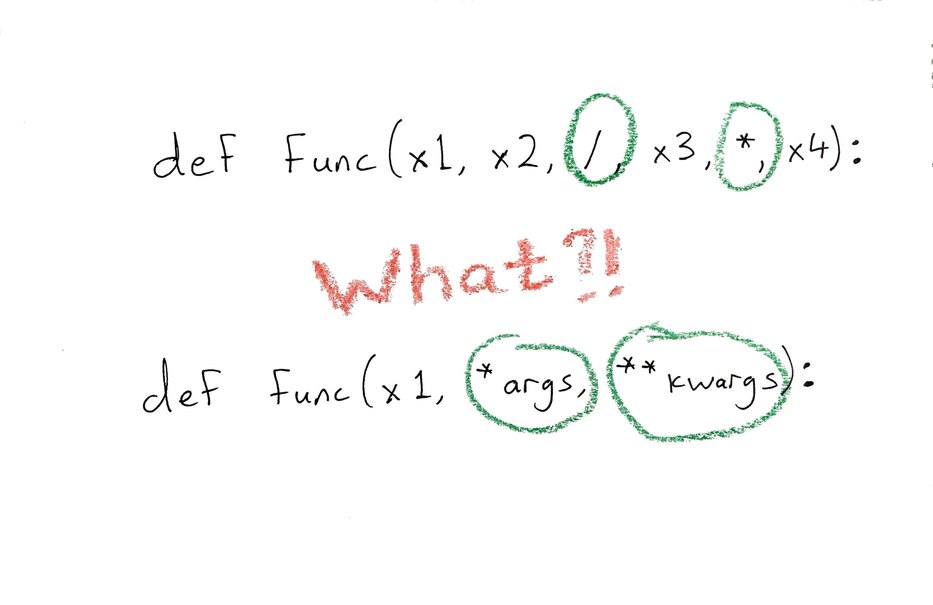 def func(x1, x2, /, x3, *, x4):
What?!!
def func(x1, *args, **kwargs):